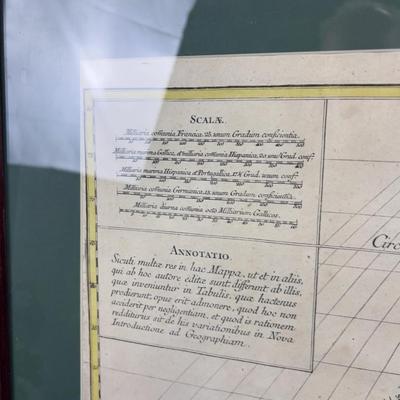 SCALÆ.
Milliaria com̃unia Francica 25. unum Gradum conficientia.
Milliaria marina Gallica, et milliaria com̃unia Hispanica, 20. unu' Grad. conf.
Milliaria marina Hispanica et Portugallica, 17½ Grad. unum conf.
Milliaria com̃unia Germanica, 15. unum Gradum conficientia.
Milliaria com̃unia octo Milliarium Gallicos.
ANNOTATIO.
Sicuti multæ res in hac Mappa, ut et in aliis,
qui ab hoc autore editæ sunt different ab illis,
quæ inveniuntur in Tabulis, quæ hactenus
prodierunt; opus erit admonere, quod hoc non
acciderit per negligentiam, et quod is rationem
redditurus sit de his variationibus in Nova
Introductione ad Geographiam.
Circ